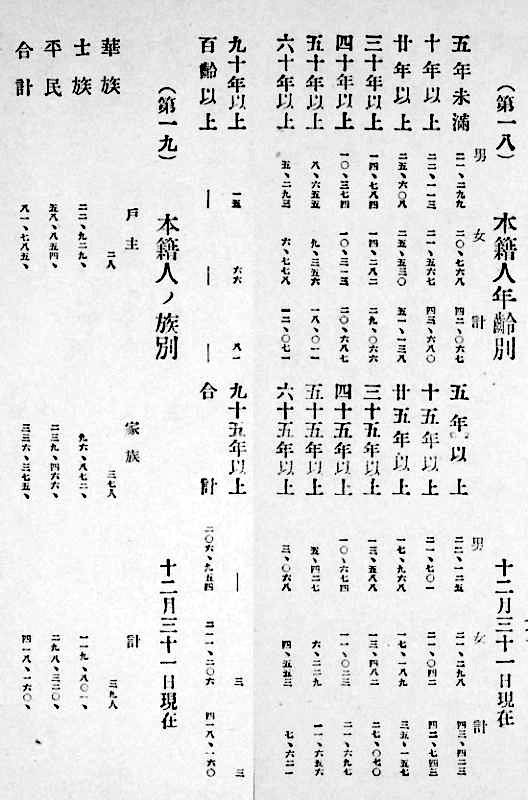 （第一八） 本籍人年齡別 十二月三十一日現在
男 女 計 男 女 計
五年未滿 二一、二九九 二〇、七六八 四二、〇六七 五年以上 二二、一二五 二一、二九八 四三、四二三
十年以上 二二、一一三 二一、五六七 四三、六八〇 十五年以上 二一、七〇一 二一、〇四二 四二、七四三
廿年以上 二五、六〇八 二五、五三〇 五一、一三八 廿五年以上 一七、九六八 一七、一八九 三五、一五七
三十年以上 一四、七八四 一四、二八二 二九、〇六六 三十五年以上 一三、五八八 一三、四八二 二七、〇七〇
四十年以上 一〇、三七四 一〇、三一三 二〇、六八七 四十五年以上 一〇、六七四 一一、〇二三 二一、六九七
五十年以上 八、六五五 九、三五六 一八、〇一一 五十五年以上 五、四二七 六、二二九 一一、六五六
六十年以上 五、二九三 六、七七八 一二、〇七一 六十五年以上 三、〇六八 四、五五三 七、六二一
九十年以上 一五 六六 八一 九十五年以上 ― 三 三
百齡以上 ― ― ― 合計 二〇六、九五四 二一一、二〇六 四一八、一六〇
（第一九） 本籍人ノ族別 十二月三十一日現在
戶主 家族 計
華族 二人 三七人 三九人
士族 二二、九二九、 九六、八七二、 一一九、八〇一、
平民 五八、八五四、 二三九、四六六、 二九八、三二〇、
合計 八一、七八五、 三三六、三七五、 四一八、一六〇、